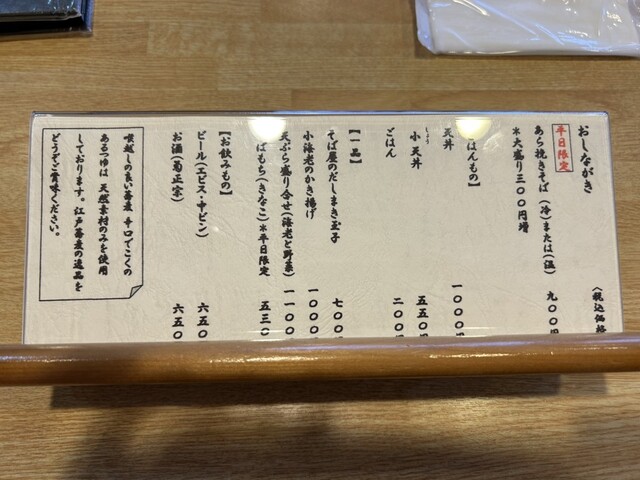 おしながき
（税込価格
平日限定
あら挽きそば（冷）または（温） 九〇〇円
＊大盛り三〇〇円増
はんもの】
天丼 一〇〇〇
しょう
小天丼 五五〇
ごはん 二〇〇
【一品】
そば屋のだしまき玉子 七〇〇
小海老のかき揚げ 一〇〇〇
天ぷら盛り合せ（海老と野菜） 一一〇〇
ばもち（きなこ）＊平日限定 五三〇
【お飲みもの】
ビール（エビス・中ビン） 六五〇
お酒（菊正宗） 六五〇
喉越しの良い蕎麦 辛口でこくの
あるつゆは 天然素材のみを使用
しております。江戸蕎麦の逸品を
どうぞご賞味ください。